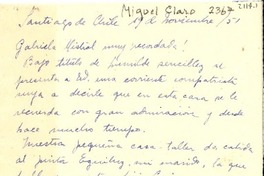 Miguel Claro 2367
Santiago de Chile 19 de noviembre/51
Gabriela Mistral muy recordada!
Bajo título de humilde sencillez se
presenta a Ud. una corriente compatriota
suya a decirle que en esta casa se le
recuerda con gran admiración y desde
hace mucho tiempo.
Nuestra pequeña casa-taller da cabida
al pintor mi marido, la que